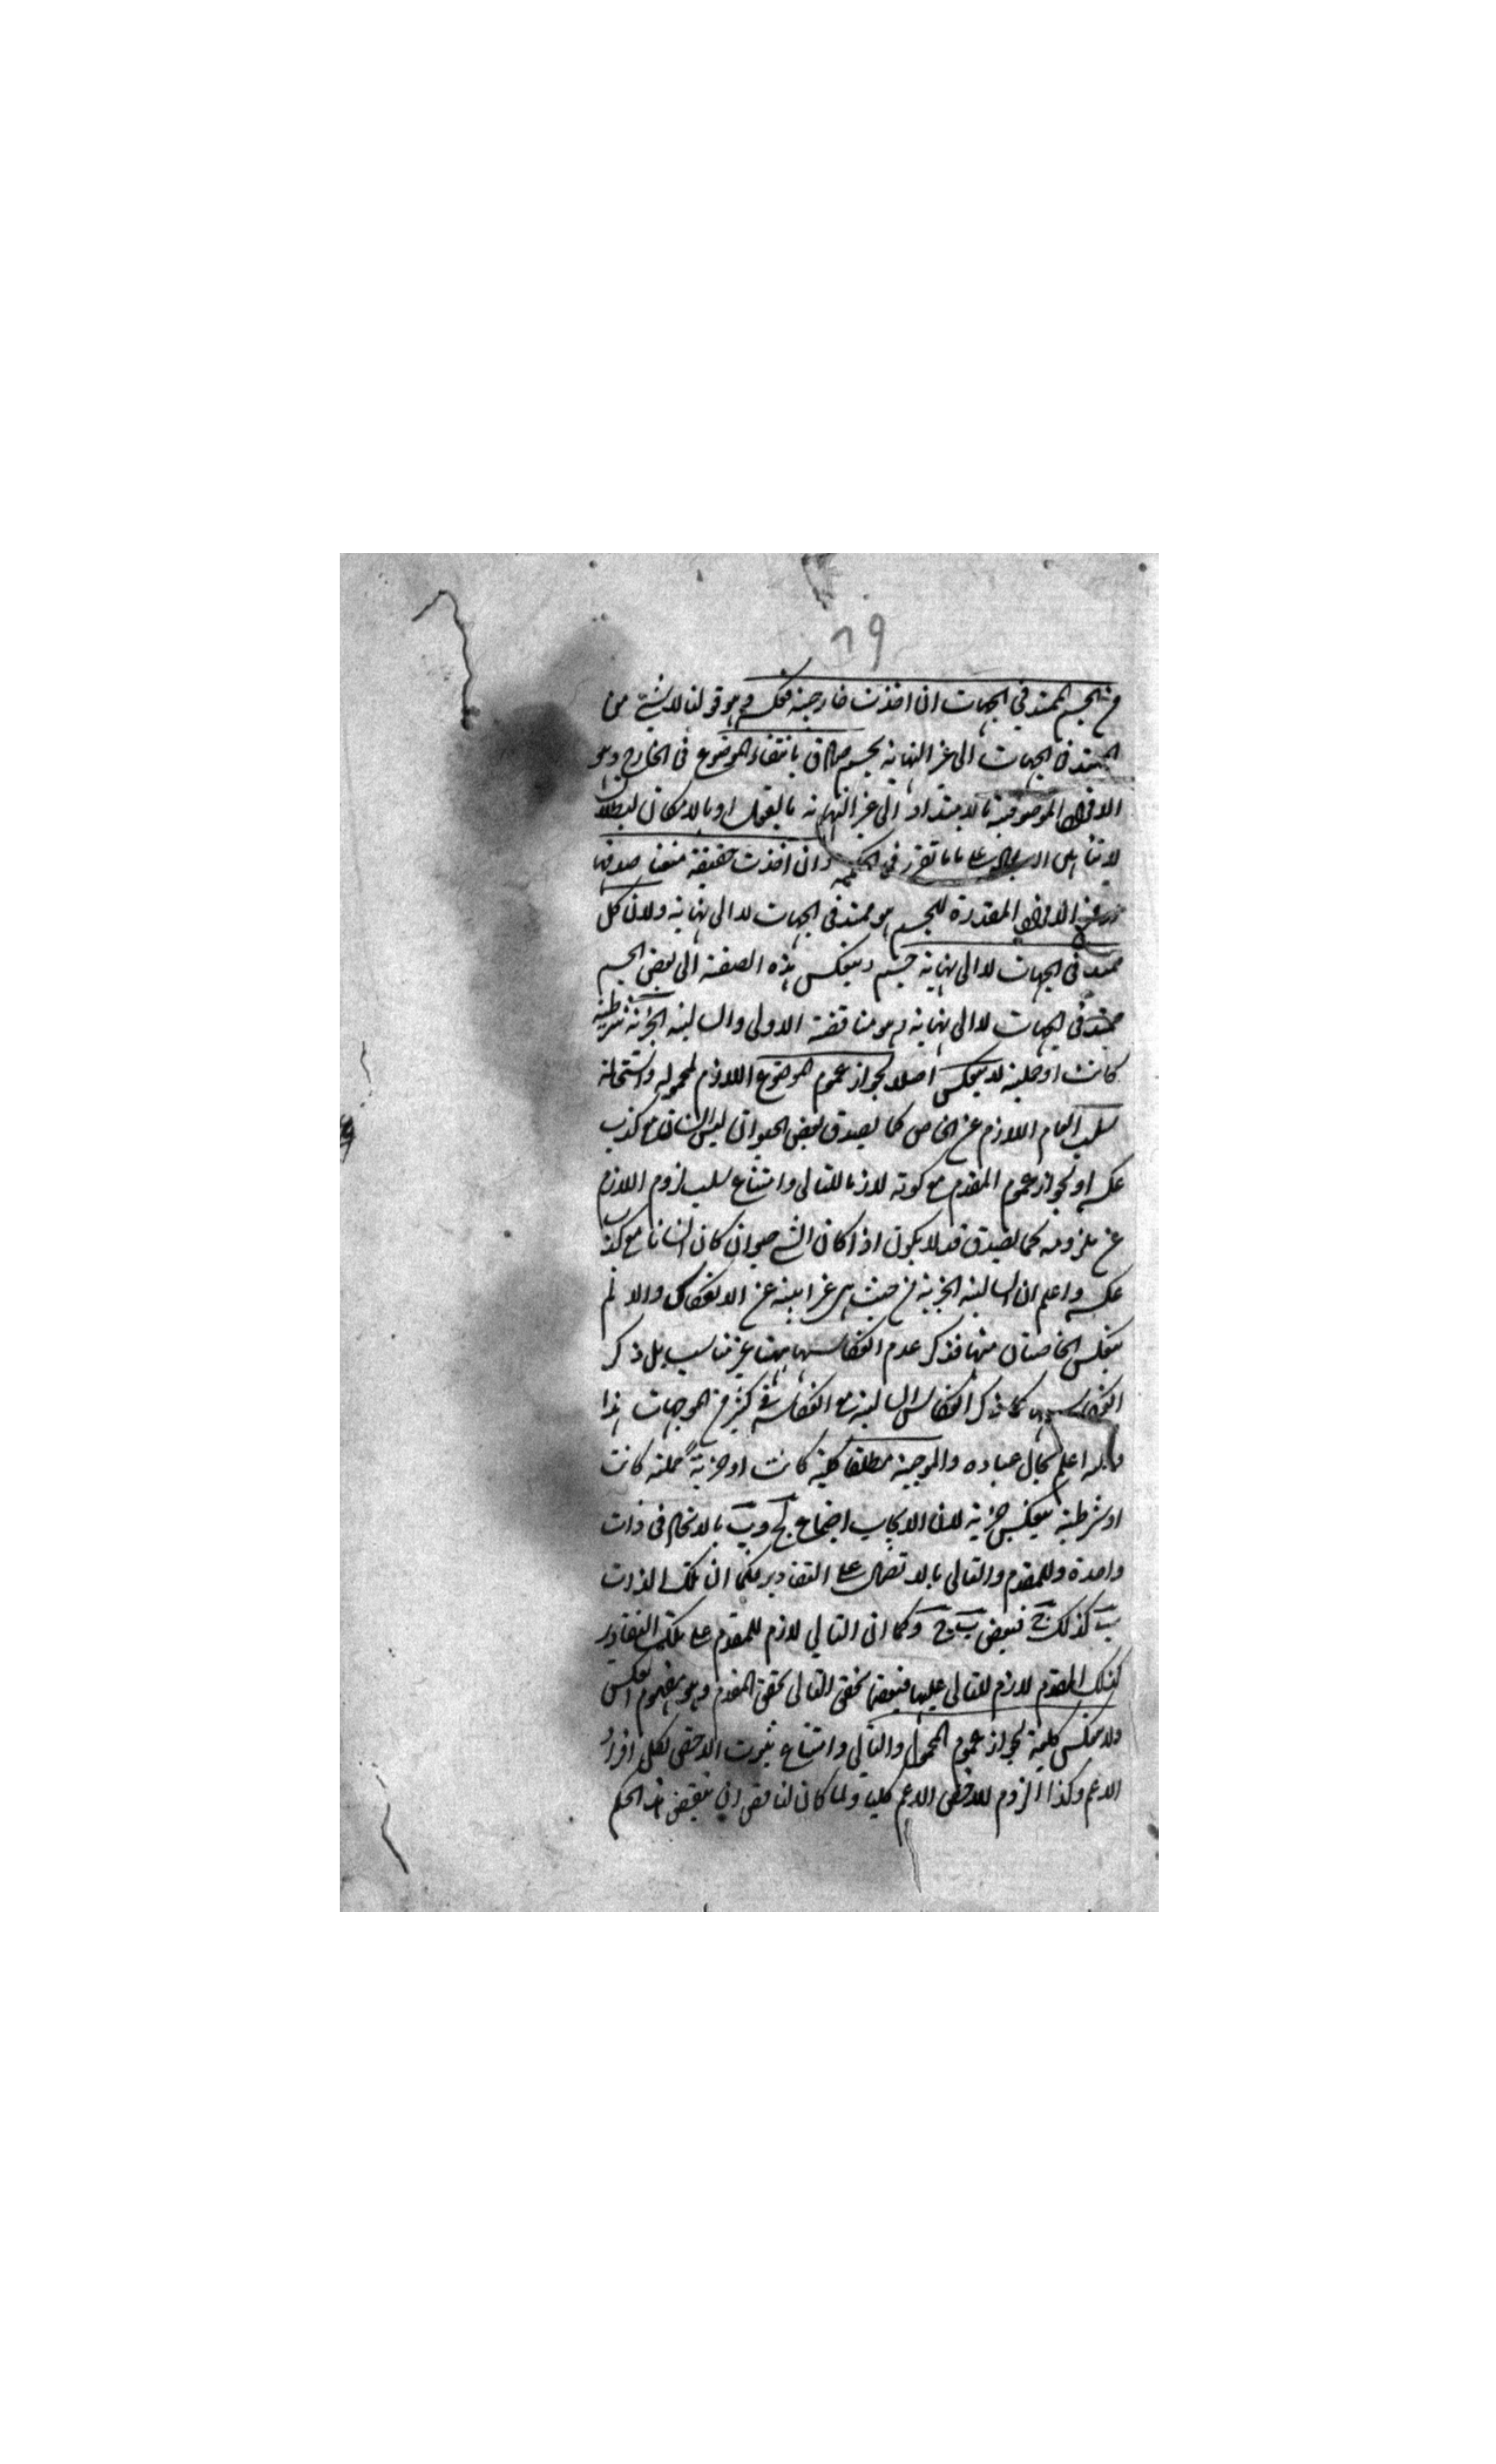 ٦٩
من الجسم الممتد في الجهات ان اخذت خارجية فعكسه وهو قولنا لا شيء من
الممتد في الجهات الى غير النهاية بجسم صادق بانتفاء الموضوع في الخارج وهو
الافراد الموصوفية بالامتداد الى غير النهاية بالفعل او بالامكان لبطلان
لا تناهى الابعاد على ما تقرر في الحكمة وان اخذت حقيقية منعنا صدقها
الافراد المقدرة للجسم هو ممتد في الجهات لا الى نهاية ولان كل
ممتد في الجهات لا الى نهاية جسم وينعكس هذه الصفة الى بعض الجسم
ممتد في الجهات لا الى نهاية وهو مناقضة الاولى والسالبة الجزئية شرطية
كانت او حملية لا ينعكس اصلا لجواز عموم الموضوع اللازم لمحموله واستحالة
سلب العام اللازم عن الخاص كما يصدق بعض الحيوان ليس بانسان مع كذب
عكسه او لجواز عموم المقدم مع كونه لازما للتالى وامتناع سلب لزوم اللازم
عن ملزومه كما يصدق قد لا يكون اذا كان الشيء حيوانا كان انسانا مع كذب
عكسه واعلم ان السالبة الجزئية من حيث هي غير ابية عن الانعكاس والا لم
ينعكس الخاصتان منها فذكر عدم انعكاسها ههنا غير مناسب بل ذكر
انعكاسها كما ذكر انعكاس السالبة مع انعكاسه في كثير من الموجهات هذا
والله اعلم بحال عباده والموجبة مطلقا كلية كانت او جزئية حملية كانت
او شرطية ينعكس جزئية لان الايجاب اجتماع لج وب بالاتحاد في ذات
واحدة وللمقدم والتالى بالاتصال على التقادير فكما ان تلك الذات
ب كذلك ج فبعض ب ج وكما ان التالي لازم للمقدم على تلك التقادير
كذلك المقدم لازم للتالى عليها فبعض تحقق التالى تحقق المقدم وهو مفهوم العكس
ولا ينعكس كلية لجواز عموم المحمول والتالي وامتناع ثبوت الاخص لكل افراد
الاعم وكذا لزوم الاخص للاعم كليا ولما كان لناقض ان ينقض هذا الحكم